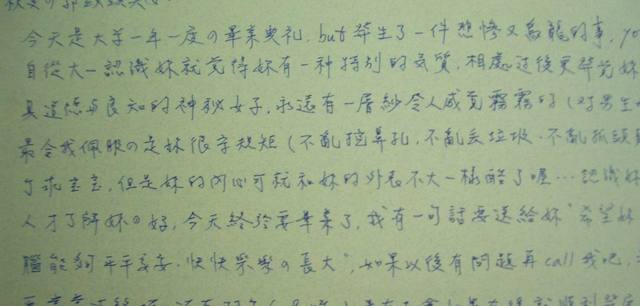 今天是大學一年一度の畢業典礼, but 發生了一件悲慘又烏龍的事,
自從大一認識妳就覺得妳有一種特別的氣質, 相處過後更發覺妳
具道德与良知的神秘女子, 永遠有一層紗令人感覺霧霧的 (对男生
最令我佩服の是妳很守規矩 (不亂挖鼻孔, 不亂丟垃圾, 不亂抓頭
了乖宝宝, 但是妳的內心可就和妳的外表不大一樣酷了喔… 認識妳
人才了解妳の好, 今天終於要畢業了, 我有一句話要送給妳"希望妳
腦能夠平平安安, 快快樂樂の長大", 如果以後有問題再call我吧,